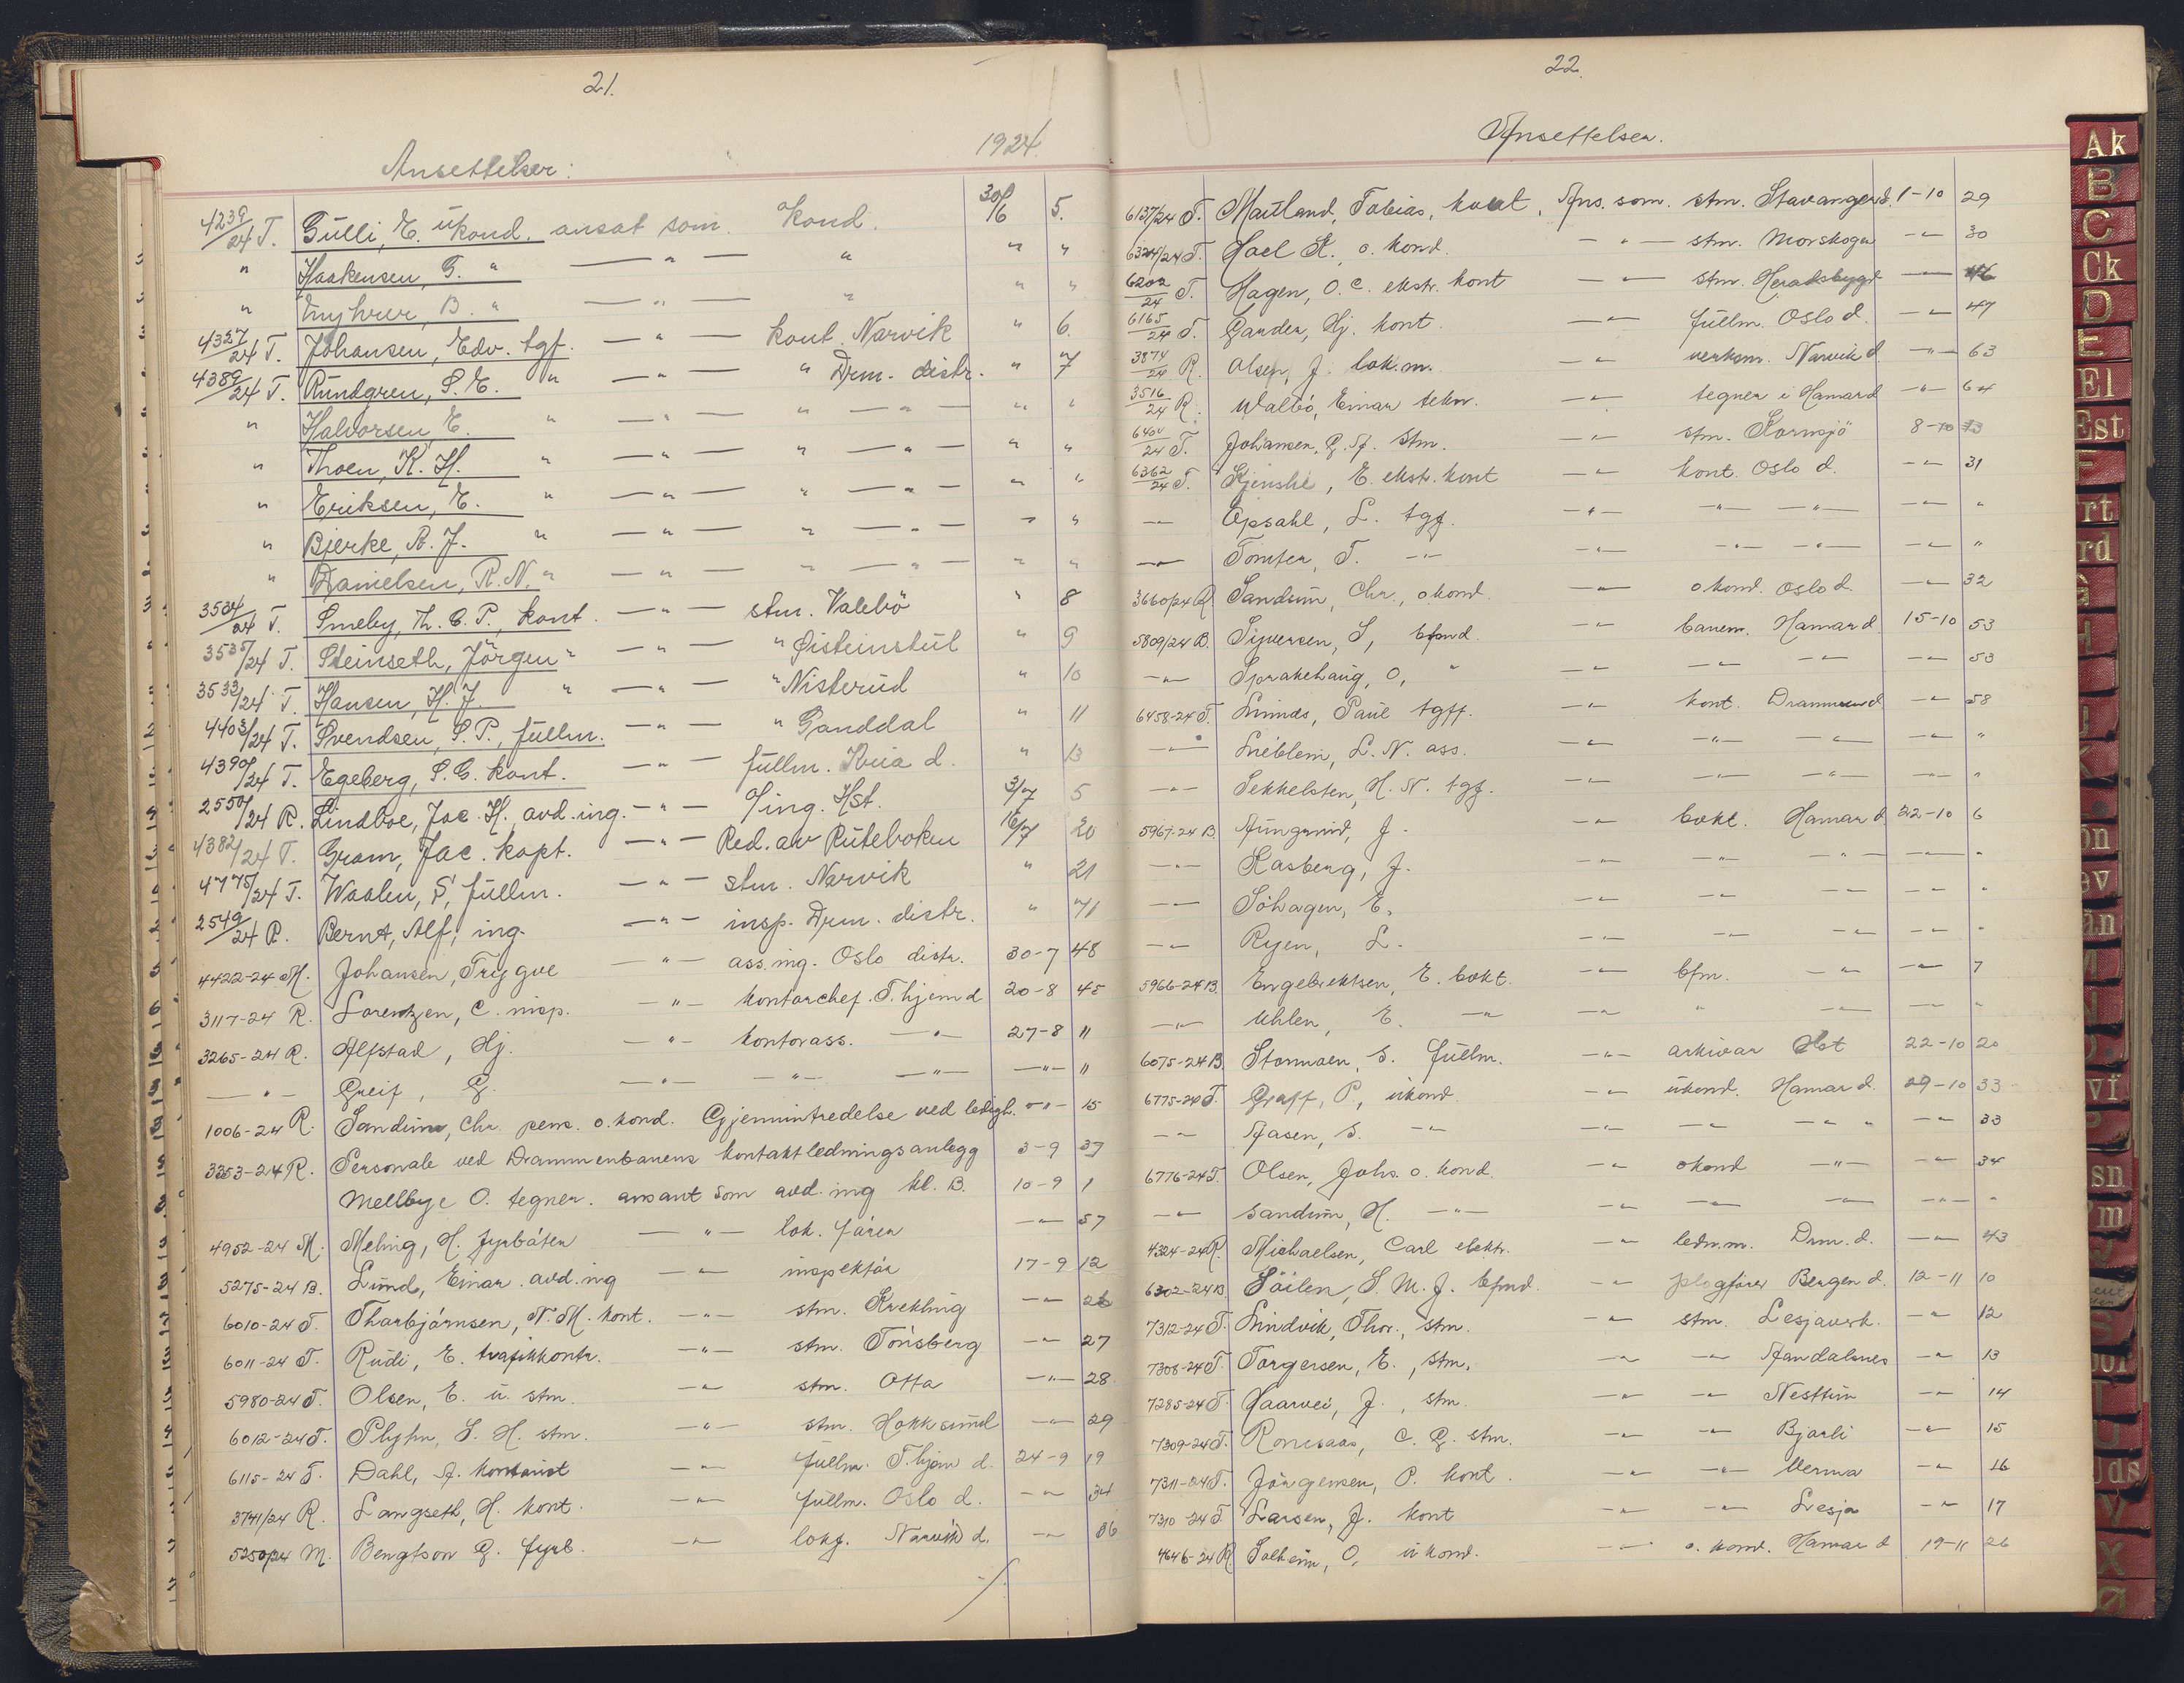 21.
Ansettelser:
1924.
4239/24 T. Gulli, E. ukond. ansat som Kond. 30/6 5.
" Haakensen, G. " — " — " " "
" Myhrer, B. " — " — " " "
4327/24 T. Johansen, Edv. tgf. — " — kont. Narvik " 6.
4389/24 T. Rundgren, S. E. " — " — " Drm. distr. " 7
" Halvorsen E. " — " — " — " — " "
" Thoen, K. H. " — " — " — " — " "
" Eriksen, E. " — " — " — " — " "
" Bjerke, A. J. " — " — " — " — " "
" Danielsen, R. N. " — " — " — " — " "
3534/24 T. Smeby, Th. O. P., kont. — " — stm. Valebö " 8
3535/24 T. Steinseth, Jörgen " — " — " Øisteinstul " 9
3533/24 T. Hansen, H. J. " — " — " Nisterud " 10
4403/24 T. Svendsen, S. P., fullm. — " — " Ganddal " 11
4390/24 T. Egeberg, S. G. kont. — " — fullm. d. " 13
2550/24 R. Lindboe, Jac. H. avd. ing. — " — o/ing. Hst. 3/7 5
4382/24 T. Gram, Jac. kapt. — " — Red. av Ruteboken 16/7 20
4775/24 T. Waalen, S, fullm. — " — stm. Narvik " 21
2549/24 R. Bernt, Alf, ing. — " — insp. Drm. distr. " 71
4422-24 M. Johansen, Trygve — " — ass. ing. Oslo distr. 30-7 48
3117-24 R. Lorentzen, C. insp. — " — kontorchef. T.hjem d 20-8 45
3265-24 R. Alfstad, Hj. — " — kontorass. — " — 27-8 11
— " — Greif, G. — " — — " — — " — — " — 11
1006-24 R. Sandum, Chr. pens. o. kond. Gjeninntredelse ved ledigh. — " — 15
3353-24 R. Personale ved Drammenbanens kontaktledningsanlegg 3-9 37
Mellbye O. tegner. ansatt som avd. ing kl. B. 10-9 1
4952-24 M. Meling, H. fyrbøter — " — lok. fører — " — 57
5275-24 B. Lund, Einar. avd. ing — " — inspektør 17-9 12
6010-24 T. Thorbjørnsen, N. M. kont. — " — stm. Krekling — " — 26
6011-24 T. Rudi, E. trafikkontr. — " — stm. Tønsberg — " — 27
5980-24 T. Olsen, E. u. stm. — " — stm. Otta — " — 28
6012-24 T. Plyhn, S. H. stm. — " — stm. Hokksund — " — 29
6115-24 T. Dahl, A. kontorist — " — fullm. T.hjem d. 24-9 19
3741/24 R. Langseth, H. kont. — " — fullm. Oslo d. — " — 34
5250/24 M. Bengtson G. fyrb. — " — lokf. Narvik d. — " — 86
22.
Ansettelser.
6137/24 T. Mauland, Tobias, kont. Ans. som. stm. Stavanger d. 1-10 29
6324/24 T. Hoel K., o. kond. — " — stm. Morskogen — " — 30
6202/24 T. Hagen, O. C. ekstr. kont — " — stm. Heradsbygd — " — 46
6165/24 T. Garder, Hj. kont. — " — fullm. Oslo d. — " — 47
3874/24 R. Olsen, J. lok. m. — " — verksm. Narvik d — " — 63
3516/24 R. Walbö, Einar tekn. — " — tegner i Hamar d — " — 64
6400/24 T. Johansen, G. A. stm. — " — stm. Kornsjö 8-10 13
6362/24 T. Stjenslie, E. ekstr. kont — " — kont. Oslo d. — " — 31
— " — Opsahl, L. tgf. — " — — " — — " — — " — "
— " — Tomter, T. — " — — " — — " — — " — — " — "
3660/24 R Sandum, Chr., okond. — " — o kond. Oslo d. — " — 32
5809/24 B. Sigversen, S, bfmd. — " — banem. Hamar d. 15-10 53
— " — Sprakehaug, O, " — " — — " — — " — — " — 53
6458-24 T. Linnæs, Paul tgff. — " — kont. Drammen d — " — 58
— " — Lieblein, L. N. ass. — " — — " — — " — — " — "
— " — Sekkelsten, H. N. tgf. — " — — " — — " — — " — "
5967-24 B. Aungrind, J. — " — bvkt. Hamar d. 22-10 6
— " — Kasberg, J. — " — — " — — " — — " — "
— " — Söhagen, E, — " — — " — — " — "
— " — Ryen, L. — " — — " — — " — — " — "
5966-24 B. Engebretsen, E. bvkt. — " — bfm. — " — — " — 7
— " — Uhlen, E. — " — — " — " — " — — " — "
6075-24 B. Stormoen, S. fullm. — " — arkivar Hst 22-10 20
6775-24 T. Graff, P, ukond. — " — ukond. Hamar d. 29-10 33
— " — Aasen, S. — " — — " — — " — — " — " — " — 33
6776-24 T. Olsen, Johs. o. kond. — " — okond — " — — " — 34
— " — Sandum, H. — " — — " — — " — — " — — " — "
4324-24 R. Michaelsen, Carl elektr. — " — ledn. m. Drm. d. — " — 43
6302-24 B. Söilen, S. M. J. bfmd. — " — plogfører Bergen d. 12-11 10
7312-24 T. Lindvik, Thor., stm. — " — stm. Lesjaverk. — " — 12
7308-24 T. Torgersen, E., stm. — " — — " — Åndalsnes — " — 13
7285-24 T. Haarvei, J., stm. — " — — " — Nesttun — " — 14
7309-24 T. Romsaas, C. G. stm. — " — — " — Bjorli — " — 15
7311-24 T. Jörgensen, P. kont. — " — — " — Verma — " — 16
7310-24 T. Larsen, J. kont — " — — " — Lesja — " — 17
4646-24 R Solheim, O, u kond. — " — o. kond. Hamar d 19-11 26
Ak
B
C
Ck
D
E
El
Est
F
rt
rd
G
H
J
K
øn
ev
ån
M
N
O.
vi
P
sn
S
T
U
Uds
V
X
Ø